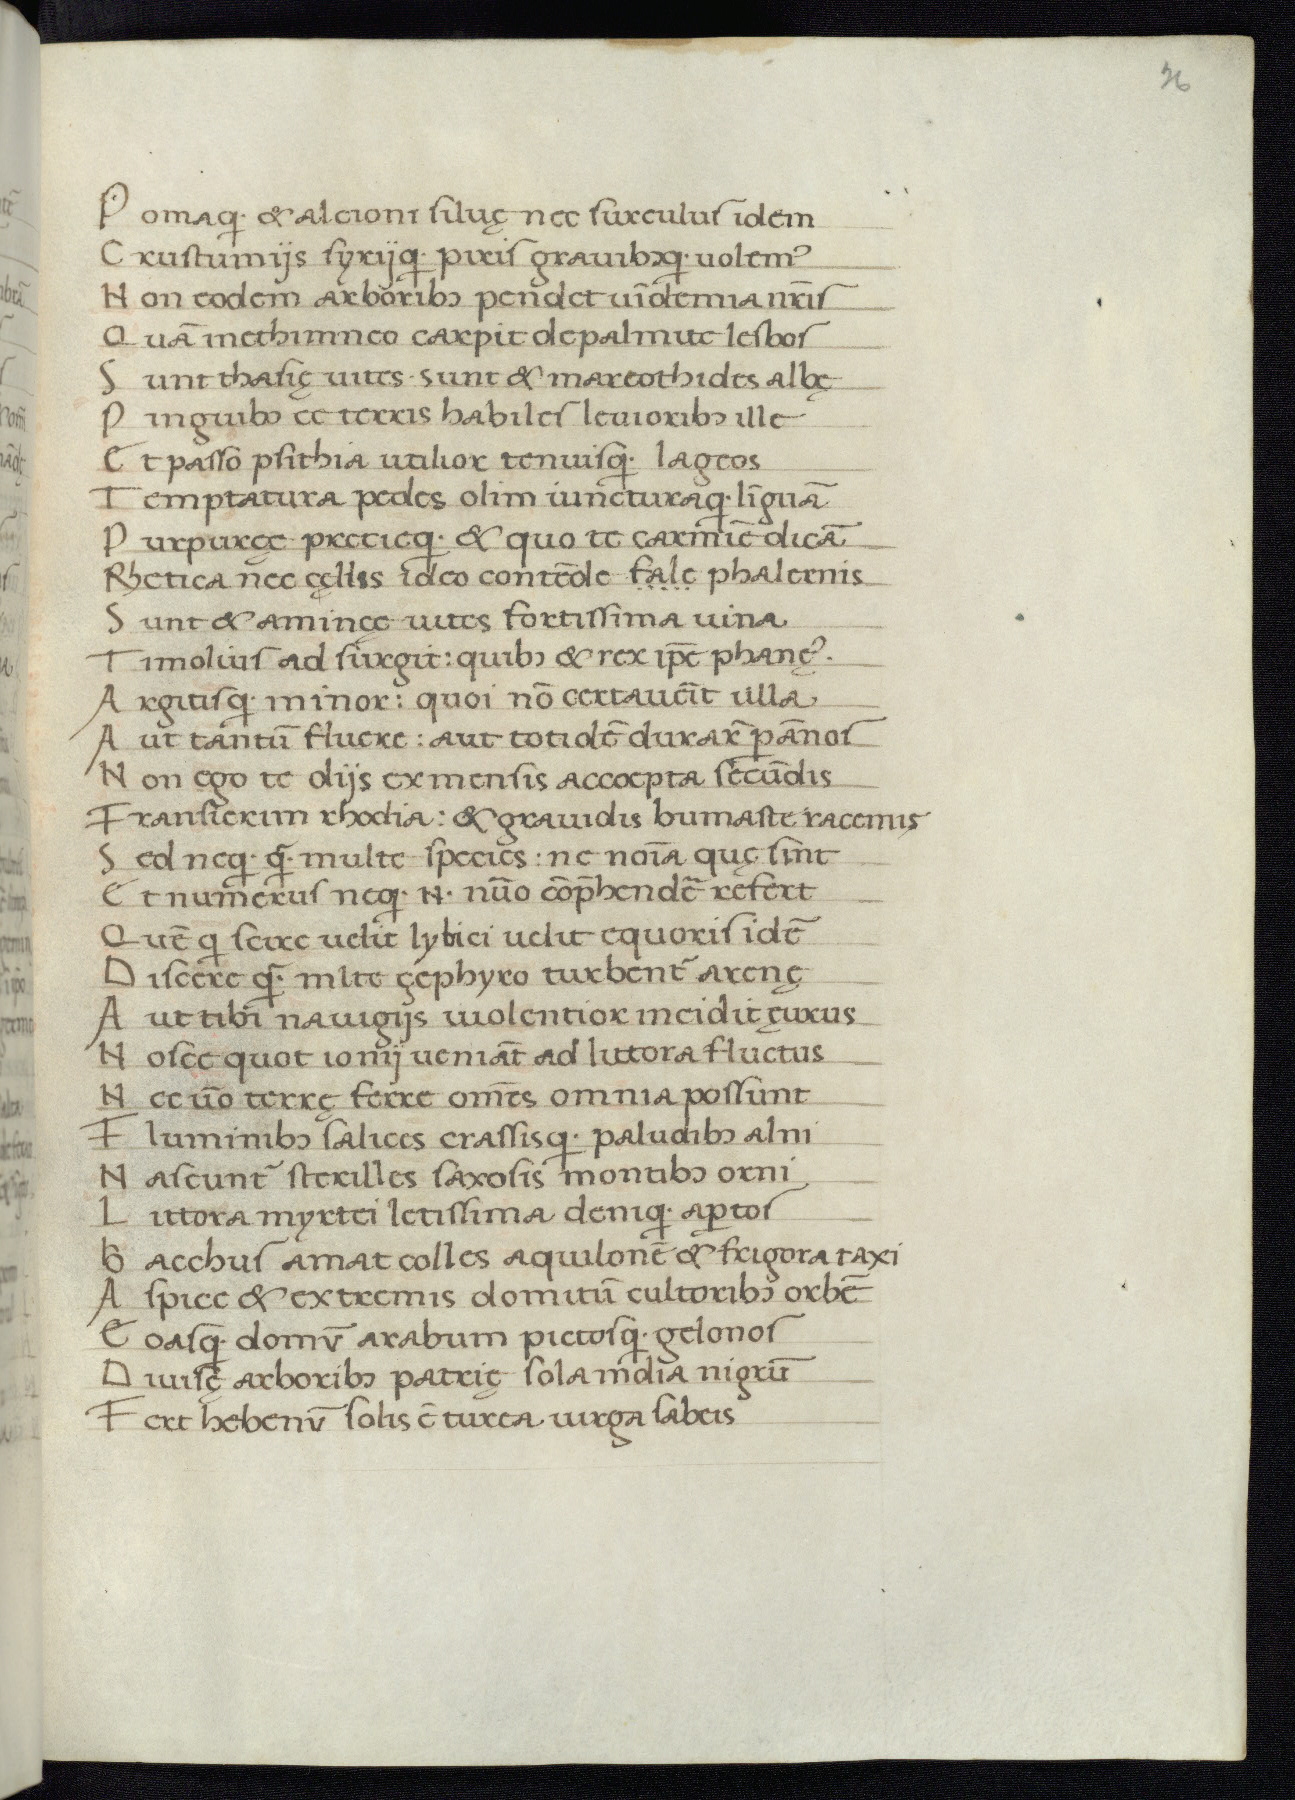 26
Pomaq. & alcioni siluę nec surculus idem
Crustumijs syrijq. piris grauibꝫq. uolemꝰ
Non eodem arboribꝫ pendet uīdemia nr̄is
Quā methimneo carpit de palmite lesbos
Sunt thasię uites sunt & mareothides albę
Pinguibꝫ ee terris habiles leuioribꝫ ille
Et passo psithia utilior tenuisq. lageos
Temptatura pedes olim iuncturaq. līguā
Purpureę precieq. & quo te carmīe dicā
Rhetica nec cęllis ideo contēde fale phalernis
Sunt & aminęę uites fortissima uina
Timolius ad surgit: quibꝫ & rex ip̄e phanęꝰ.
Argitisq. minor: quoi nō certauēit ulla
Aut tantū fluere: aut totidē durar̄ p̄ annos
Non ego te dijs ex mensis accoepta secūdis
Transierim rhodia: & grauidis bumaste racemis
Sed neq. q̄. multe species: ne noīa quę sint
Et numerus neq. N. nūo cōp̄hendē refert
Quē q scire uelit lybici uelit equoris idē
Discere q̄. mlte ęephyro turbent̄ arenę
Aut tibi nauigijs uiolentior incidit ęurus
Nosce quot ionij ueniāt ad littora fluctus
Nec ūo terrę ferre om̄es omnia possunt
Fluminibꝫ salices crassisq. paludibꝫ alni
Nascunt̄ sterilles saxosis montibꝫ orni
Littora myrtei letissima deniq. aꝑtos
Bacchus amat colles aquilonē & frigora taxi
Aspice & extremis domitū cultoribꝫ orbē
Eoasq. domū arabum pictosq. gelonos
Diuisę arboribꝫ patrię sola india nigrū
Fert hebenū solis ē turea uirga sabeis